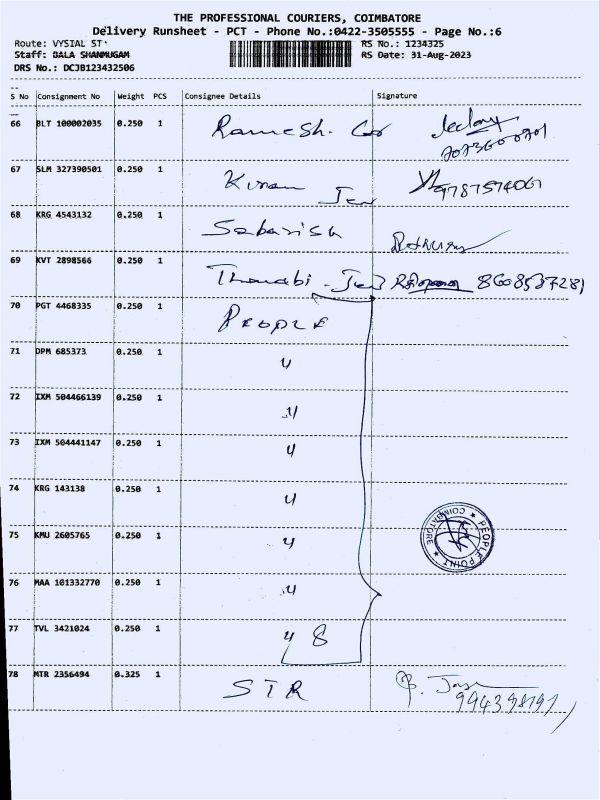 THE PROFESSIONAL COURIERS, COIMBATORE
Delivery Runsheet - PCT - Phone No.:0422-3505555 - Page No.:6
Route: VYSIAL ST
RS No.: 1234325
Staff: BALA SHANMUGAM
RS Date: 31-Aug-2023
DRS No.: DCJB123432506
S No Consignment No Weight PCS Consignee Details Signature
66 BLT 100002035 0.250 1 Ramesh. Co
67 SLM 327390501 0.250 1 Kiran Jew 9787574061
68 KRG 4543132 0.250 1 Sabarish
69 KVT 2898566 0.250 1 Jew 8608587281
70 PGT 4468335 0.250 1 PEOPLE
71 DPM 685373 0.250 1 "
72 IXM 504466139 0.250 1 "
73 IXM 504441147 0.250 1 "
74 KRG 143138 0.250 1 "
75 KMU 2605765 0.250 1 "
PEOPLE POINT * COIMBATORE *
76 MAA 101332770 0.250 1 "
77 TVL 3421024 0.250 1 " 8
78 MTR 2356494 0.325 1 STR